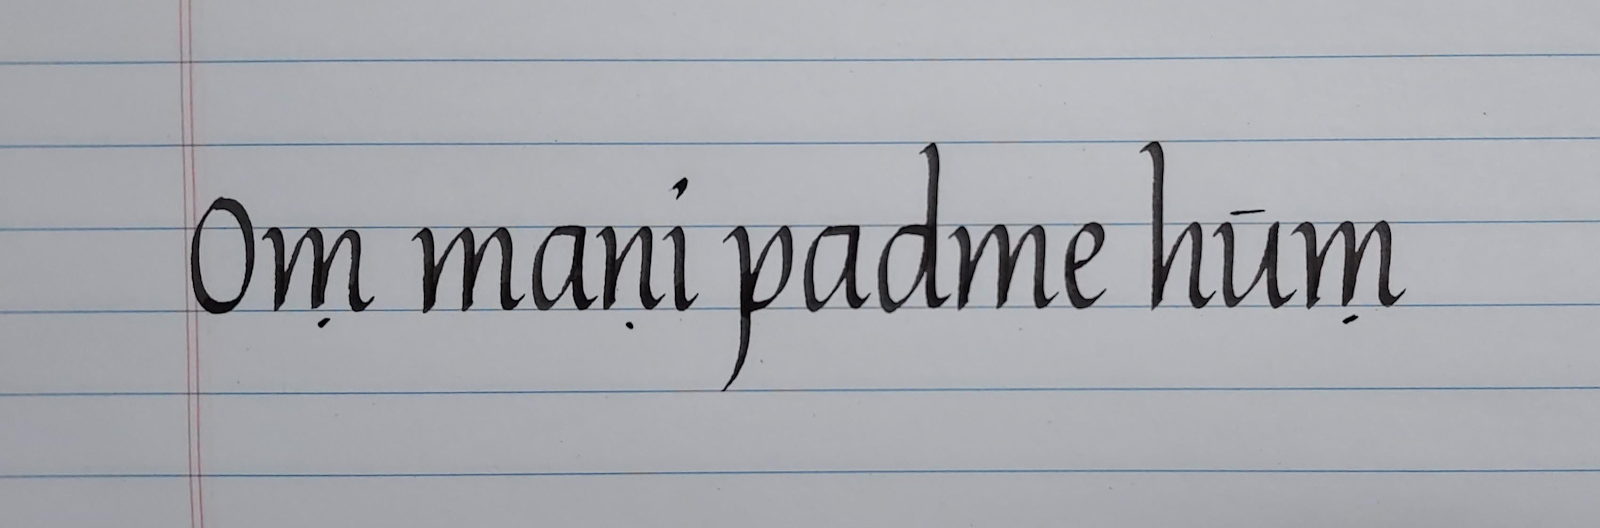 Oṃ maṇi padme hūṃ